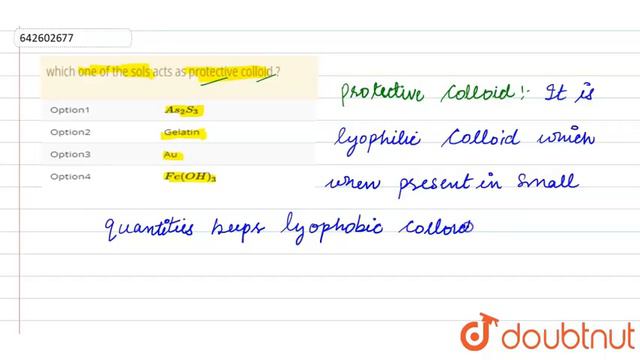 642602677
which one of the sols acts as protective colloid.?
Option1 As₂S₃
Option2 Gelatin
Option3 Au
Option4 Fe(OH)₃
protective colloid:- It is
lyophilic colloid which
when present in small
quantities keeps lyophobic colloid
doubtnut